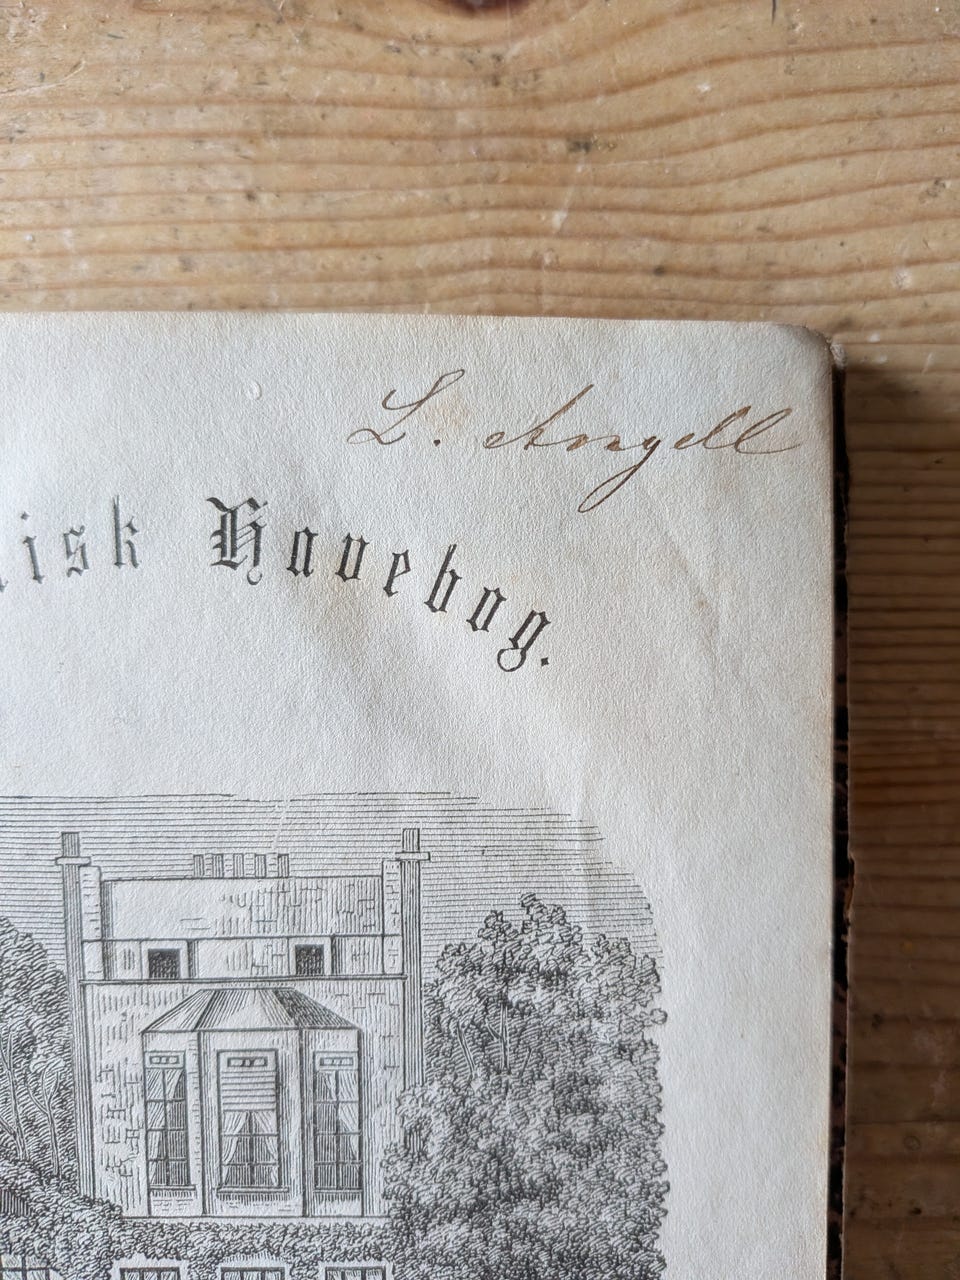 L. Angell
isk Havebog.